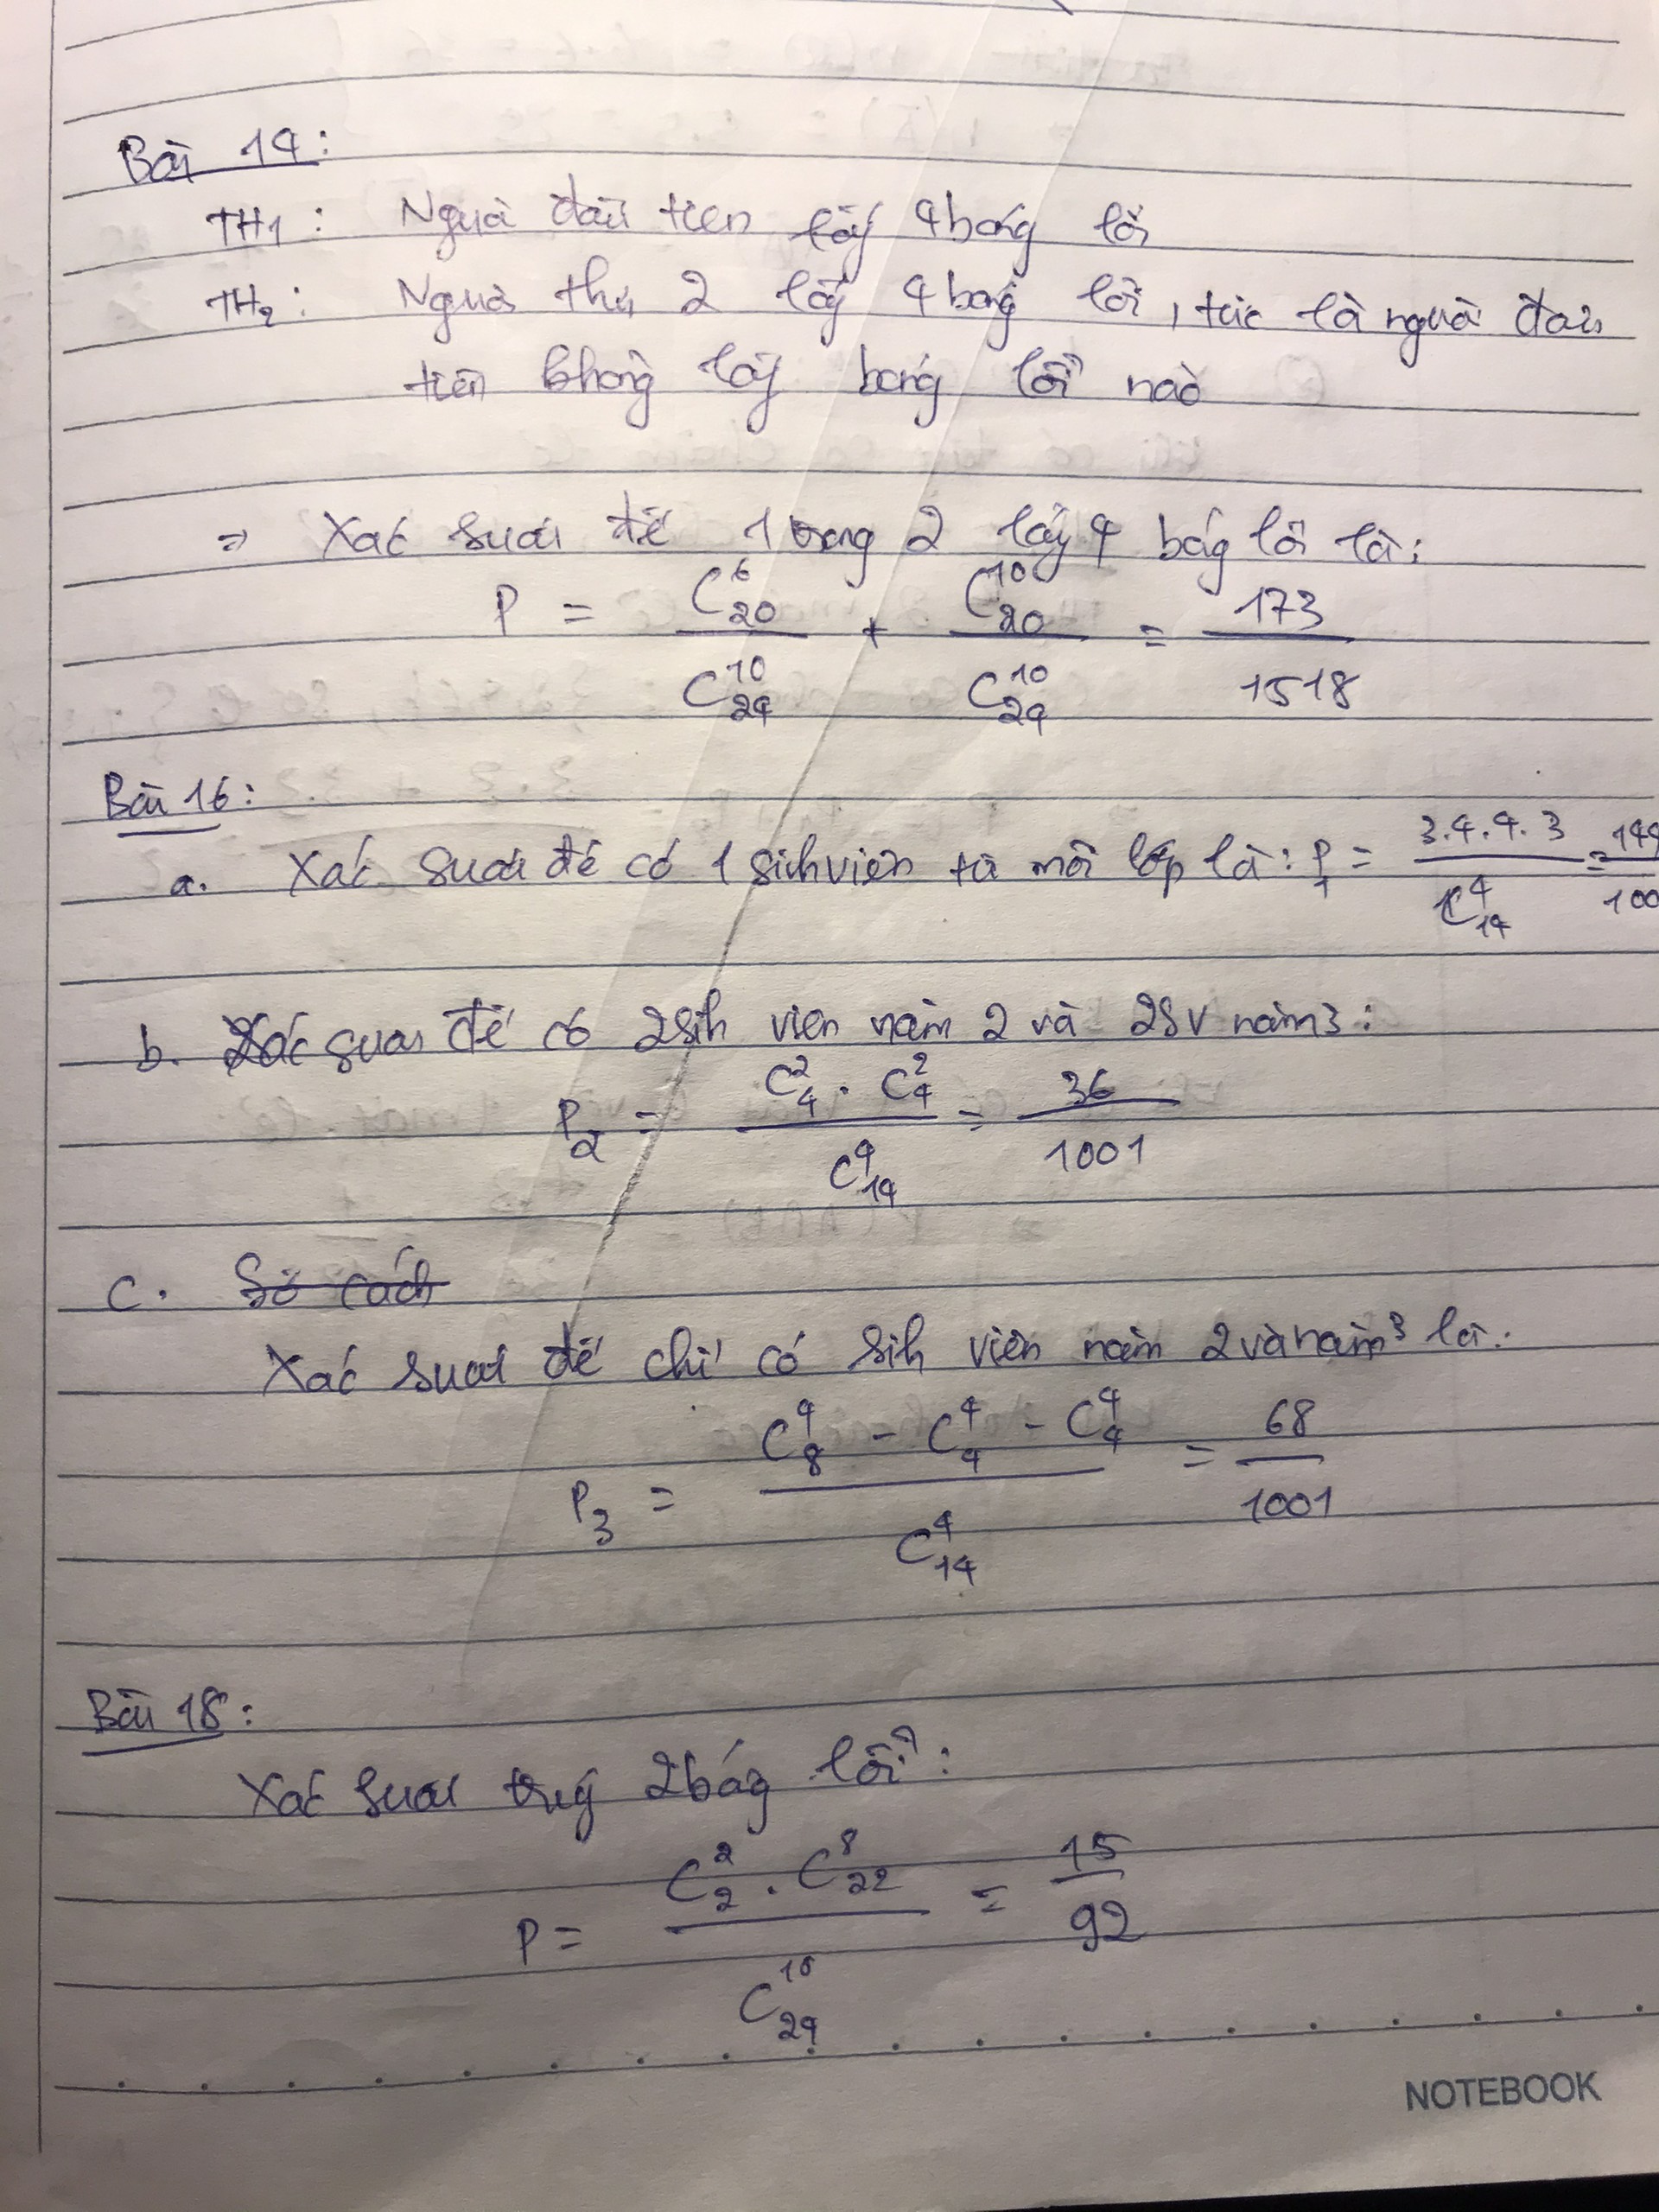 Bài 14:
TH1: Người đầu tiên lấy 4 bóng lỗi
TH2: Người thứ 2 lấy 4 bóng lỗi, tức là người đầu
tiên không lấy bóng lỗi nào
=> Xác suất để 1 trong 2 lấy 4 bóng lỗi là:
P = C_20^6 / C_24^10 + C_20^10 / C_24^10 = 173 / 1518
Bài 16:
a. Xác suất để có 1 sinh viên từ mỗi lớp là: P_1 = 3.4.4.3 / C_14^4 = 144 / 100
b. Xác suất để có 2 sinh viên năm 2 và 2SV năm 3:
P_2 = C_4^2 . C_4^2 / C_14^4 = 36 / 1001
c. Số cách
Xác suất để chỉ có sinh viên năm 2 và năm 3 là:
P_3 = C_8^4 - C_4^4 - C_4^4 / C_14^4 = 68 / 1001
Bài 18:
Xác suất trúng 2 bóng lỗi:
P = C_2^2 . C_22^8 / C_24^10 = 15 / 92
NOTEBOOK